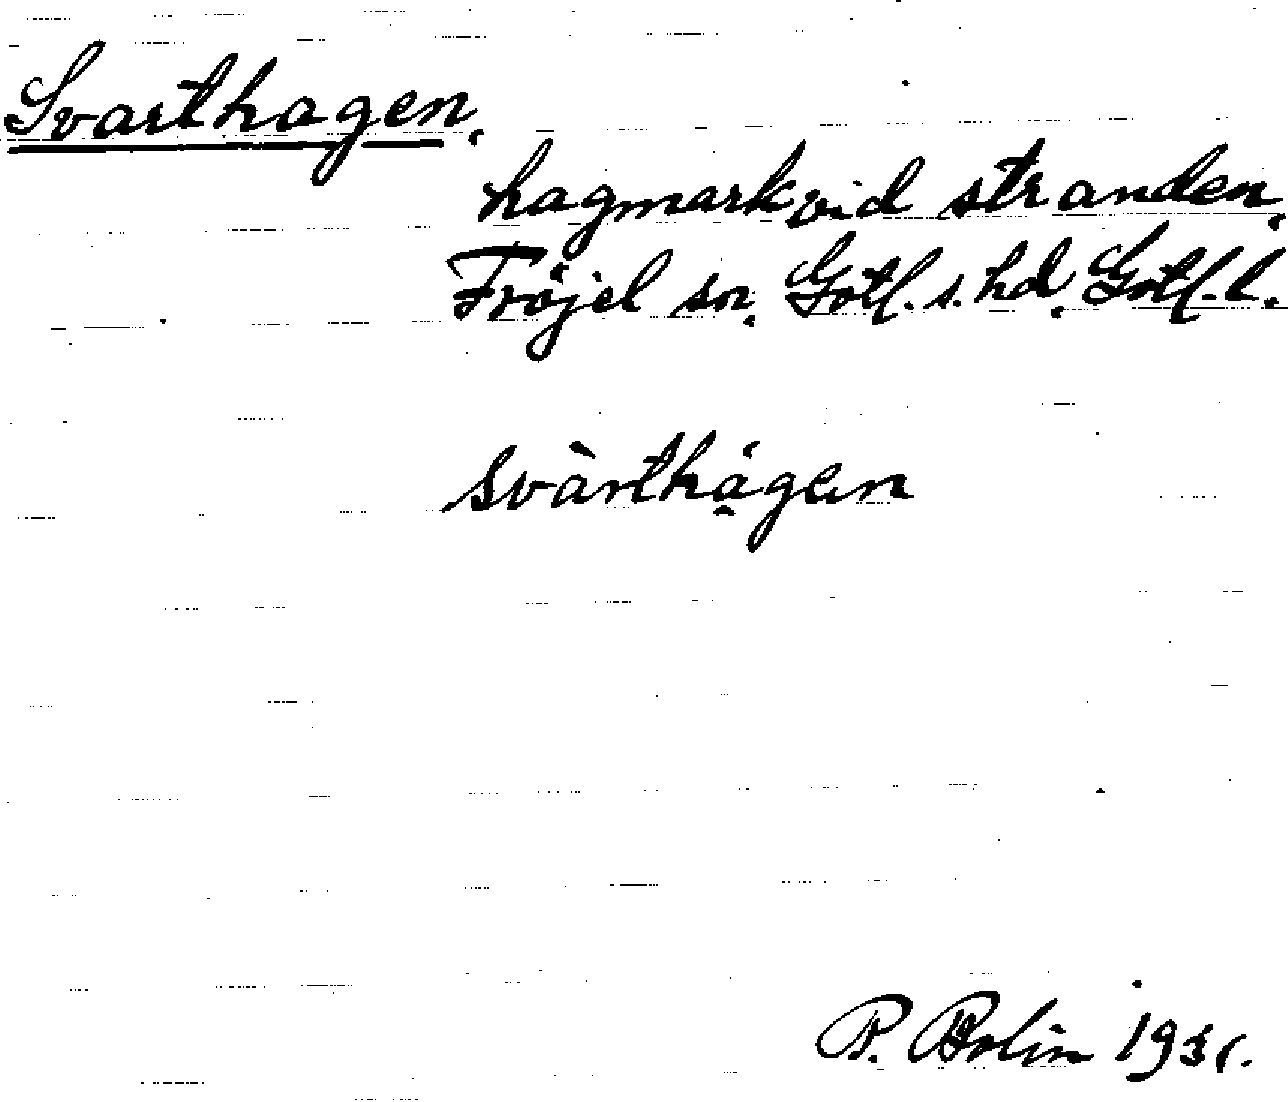 Svarthagen.
hagmark vid stranden.
Fröjel sn. Gotl. s. hd. Gotl. l.
svàrthágen
P. Bolin 1931.